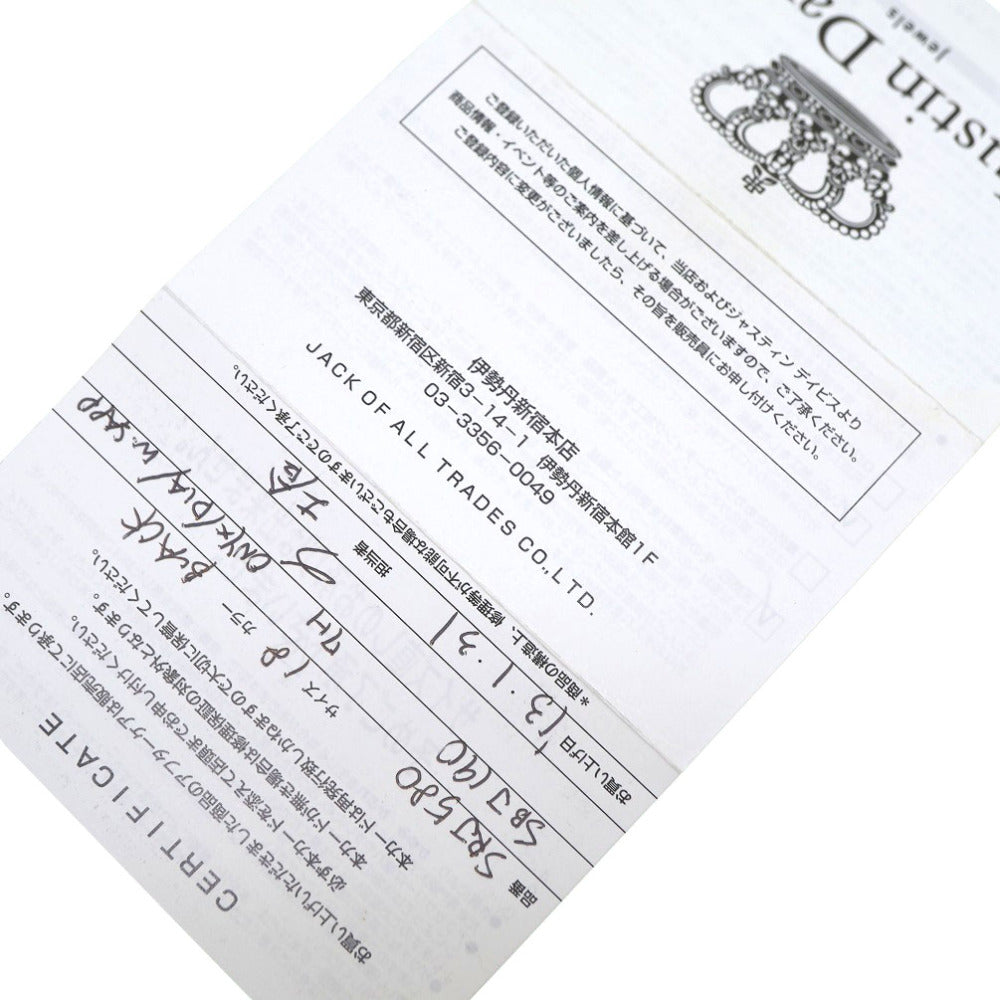 stin Da
jewels
ご登録いただいた個人情報に基づいて、当店およびジャスティン デイビスより
商品情報・イベント等のご案内を差し上げる場合がございますので、ご了承ください。
ご登録内容に変更がございましたら、その旨を販売員にお申し付けください。
伊勢丹新宿本店
東京都新宿区新宿3-14-1 伊勢丹新宿本館1F
03-3356-0049
JACK OF ALL TRADES CO., LTD.
CERTIFICATE
お買い上げいただきました商品のアフターケアは販売店にて承ります。
必ず本カードを添えて店頭までお申し付けください。
本カードが無き場合は修理保証の対象外となります。
本カードは再発行致しかねますので大切に保管してください。
品番 SRJ580 サイズ 18 カラー BLACK
SBJ190 7H ONYX/DIA/W.SAPP
お買い上げ日 '13.1.31 担当者
*商品の構造上、修理等が不可能な場合もございますのでご了承ください。